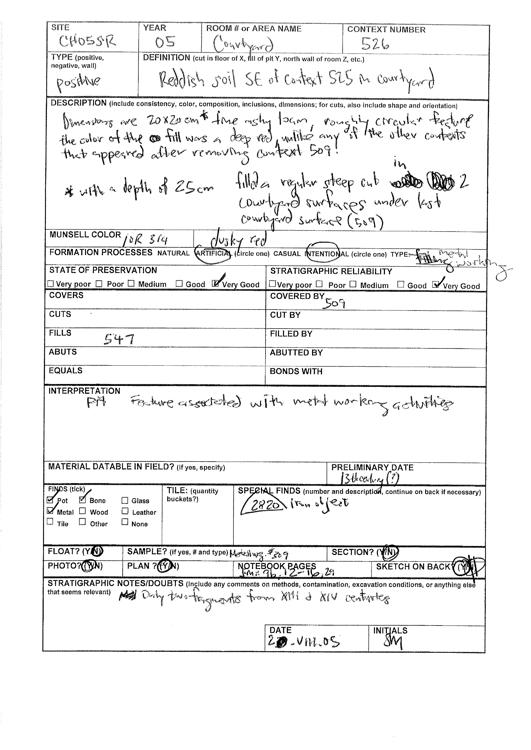 SITE YEAR ROOM # or AREA NAME CONTEXT NUMBER
CH05SR 05 Courtyard 526
TYPE (positive, negative, wall) DEFINITION (cut in floor of X, fill of pit Y, north wall of room Z, etc.)
positive Reddish soil SE of Context 525 in courtyard
DESCRIPTION (include consistency, color, composition, inclusions, dimensions; for cuts, also include shape and orientation)
Dimensions are 20x20cm* fine ashy loam, roughly circular feature
the color of the fill was a deep red, unlike any of the other contexts
that appeared after removing context 509!
* with a depth of 25cm filled a regular steep cut in 2
courtyard surfaces under last
courtyard surface (509)
MUNSELL COLOR 10R 3/4 dusky red
FORMATION PROCESSES NATURAL ARTIFICIAL (circle one) CASUAL INTENTIONAL (circle one) TYPE: metal working
STATE OF PRESERVATION STRATIGRAPHIC RELIABILITY
Very poor Poor Medium Good Very Good Very poor Poor Medium Good Very Good
COVERS COVERED BY 509
CUTS CUT BY
FILLS 547 FILLED BY
ABUTS ABUTTED BY
EQUALS BONDS WITH
INTERPRETATION
Pit Feature associated with metal working activities
MATERIAL DATABLE IN FIELD? (if yes, specify) PRELIMINARY DATE
13th century (?)
FINDS (tick) TILE: (quantity buckets?) SPECIAL FINDS (number and description, continue on back if necessary)
Pot Bone Glass 2820 iron object
Metal Wood Leather
Tile Other None
FLOAT? (Y/N) SAMPLE? (if yes, # and type) #309 SECTION? (Y/N)
PHOTO? (Y/N) PLAN ? (Y/N) NOTEBOOK PAGES SKETCH ON BACK? (Y/N)
STRATIGRAPHIC NOTES/DOUBTS (Include any comments on methods, contamination, excavation conditions, or anything else
that seems relevant) Only two fragments from XIII & XIV centuries
DATE INITIALS
20-VIII.05 SM